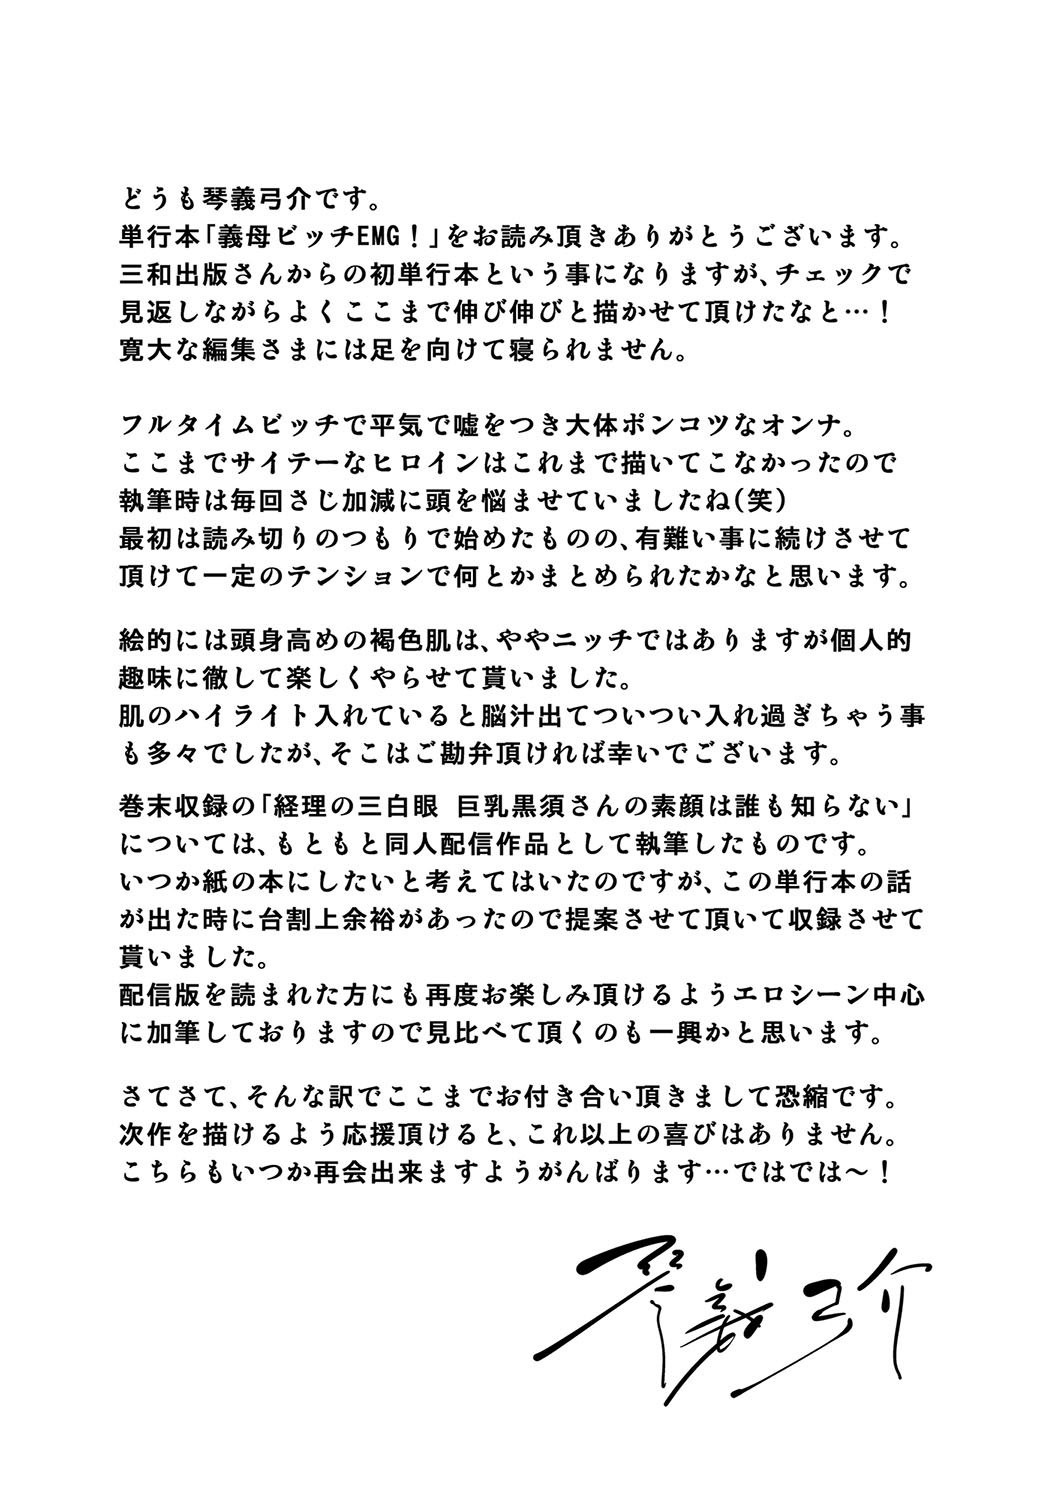 どうも琴義弓介です。
単行本「義母ビッチEMG！」をお読み頂きありがとうございます。
三和出版さんからの初単行本という事になりますが、チェックで
見返しながらよくここまで伸び伸びと描かせて頂けたなと…！
寛大な編集さまには足を向けて寝られません。
フルタイムビッチで平気で嘘をつき大体ポンコツなオンナ。
ここまでサイテーなヒロインはこれまで描いてこなかったので
執筆時は毎回さじ加減に頭を悩ませていましたね（笑）
最初は読み切りのつもりで始めたものの、有難い事に続けさせて
頂けて一定のテンションで何とかまとめられたかなと思います。
絵的には頭身高めの褐色肌は、ややニッチではありますが個人的
趣味に徹して楽しくやらせて貰いました。
肌のハイライト入れていると脳汁出てついつい入れ過ぎちゃう事
も多々でしたが、そこはご勘弁頂ければ幸いでございます。
巻末収録の「経理の三白眼 巨乳黒須さんの素顔は誰も知らない」
については、もともと同人配信作品として執筆したものです。
いつか紙の本にしたいと考えてはいたのですが、この単行本の話
が出た時に台割上余裕があったので提案させて頂いて収録させて
貰いました。
配信版を読まれた方にも再度お楽しみ頂けるようエロシーン中心
に加筆しておりますので見比べて頂くのも一興かと思います。
さてさて、そんな訳でここまでお付き合い頂きまして恐縮です。
次作を描けるよう応援頂けると、これ以上の喜びはありません。
こちらもいつか再会出来ますようがんばります…ではでは～！
琴義弓介